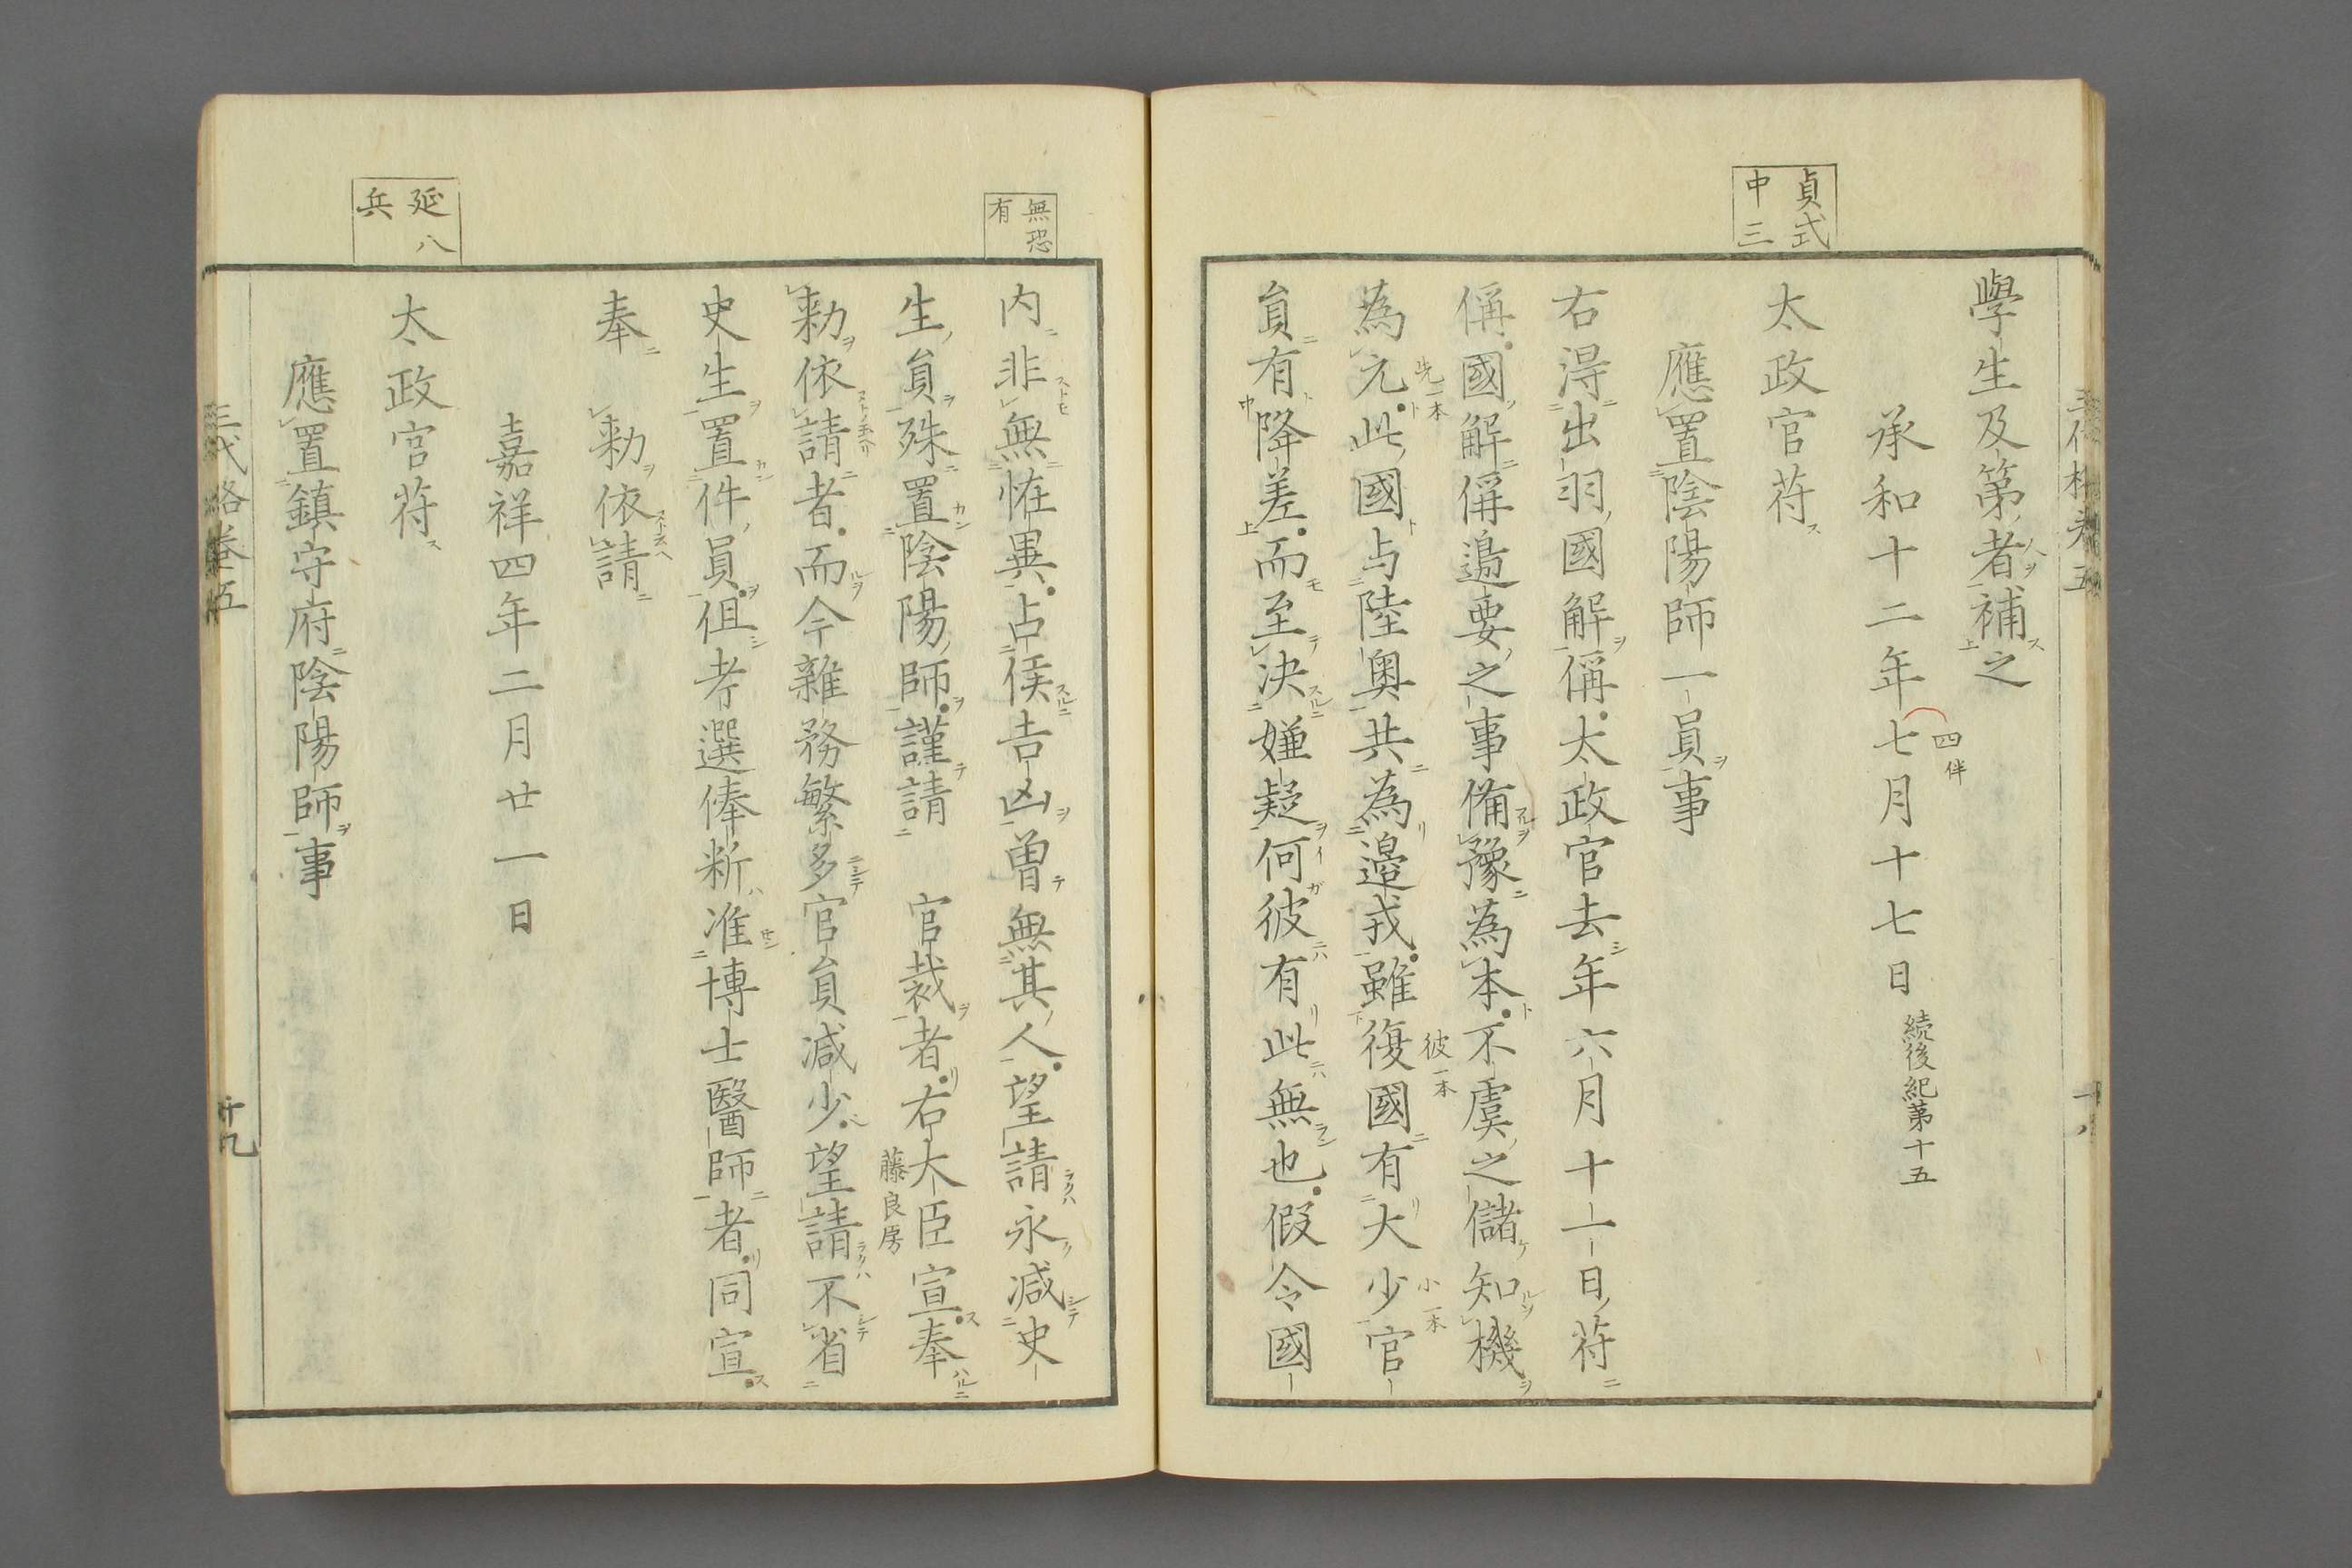 貞式
中三
學生及第者補之
承和十二年七月十七日 続後紀第十五
四伴
太政官苻
應置陰陽師一員事
右得出羽國解偁太政官去年六月十一日苻
偁國解偁邊要之事備豫為本不虞之儲知機
為元此國与陸奥共為邊戎雖復國有大少官
先一本
彼一本
小一本
貟有降差而至決嫌疑何彼有此無也假令國
無恐有
内非無恠異占候吉凶曽無其人望請永減史
生貟殊置陰陽師謹請 官裁者右大臣宣奉
藤良房
勅依請者而今雜務繁多官員减少望請不省
史生置件員但考選俸断准博士醫師者同宣
奉 勅依請
嘉祥四年二月廿一日
延八
兵
太政官苻
應置鎮守府陰陽師事
三代格卷五
十九